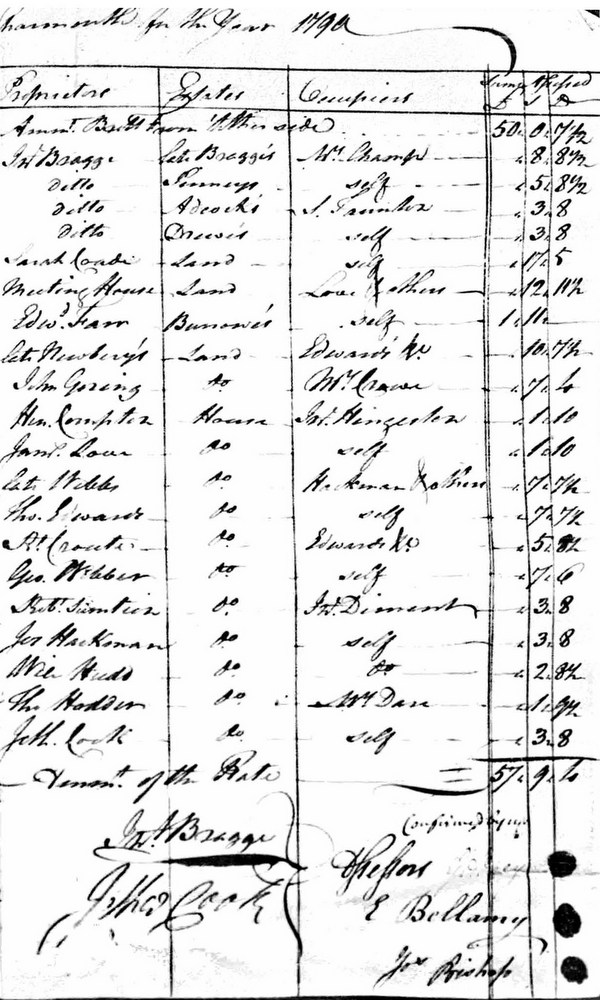 Charmouth for the Year 1790
Proprietors Estates Occupiers Sums Assessed
£ S D
Amnt. Brott from other side 50. 0. 7½
Jno Bragge late Bragges Mrs Champ 8. 8½
ditto Penneys self 5. 8½
ditto Adcocks S. 3. 8
ditto Drewes self 3. 8
Sarah Coade Land self 17. 5
Meeting House Land Love & others 12. 11½
Edwd. Farr Burrowes self 1. 11.
late Newberys Land Edwards &c 10. 7½
John Goring do Mrs Crowe 7. 4
Hen. Compton House Jno. Hingeston 1. 10
Jams. Love do self 1. 10
late Webbs do Hackman & others 7. 7½
Tho. Edwards do self 7. 7½
do Edwards &c 5. 8½
Geo. Webber do self 7. 6
Robt. do Jno. Diment 3. 8
Jos Hackman do self 3. 8
Wm Hudd do do 2. 8½
Tho Hodder do Mrs Dare 1. 9½
Jeth. Cook do self 3. 8
of the Rate 57. 9. 4
Jno Bragge
Confirmed by us
Assessors
Jethro Cook
E Bellamy
Jos Bishop